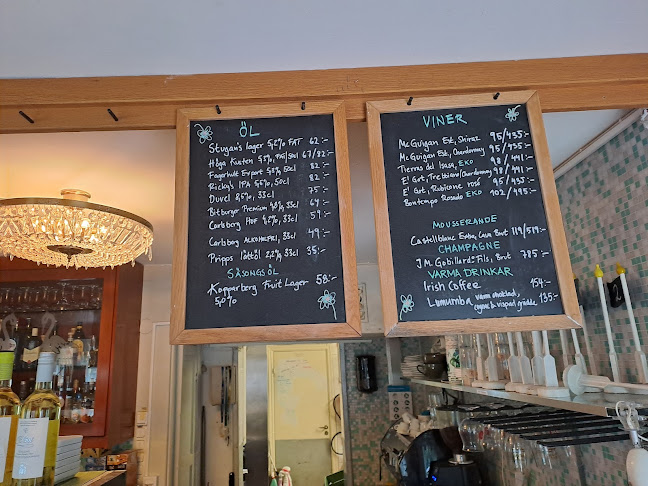 ÖL
Stugan's lager 5,2% FAT 62:-
Höga Kusten 67/82:-
Fagerhult Export 50cl 82:-
Ricky's IPA 5,6% 50cl 82:-
Duvel 8,5% 33cl 75:-
Bitburger Premium 4,8% 33cl 69:-
Carlsberg Hof 4,2% 33cl 59:-
Carlsberg ALKOHOLFRI, 33cl 49:-
Pripps lättöl 2,2% 33cl 35:-
SÄSONGSÖL
Kopparberg Fruit Lager 58:-
5,0%
VINER
McGuigan Est, Shiraz 95/435:-
McGuigan Est, Chardonnay 95/435:-
Tierras del Isasa, EKO 98/491:-
E' Got, Trebbiano/Chardonnay 98/491:-
E' Got, Rubicone rosé 95/435:-
Bontempo Rosado EKO 102/495:-
MOUSSERANDE
Castellblanc Brut 119/519:-
CHAMPAGNE
J.M. Gobillard & Fils, Brut 785:-
VARMA DRINKAR
Irish Coffee 154:-
Lumumba varm choklad, 135:-
cognac & vispad grädde